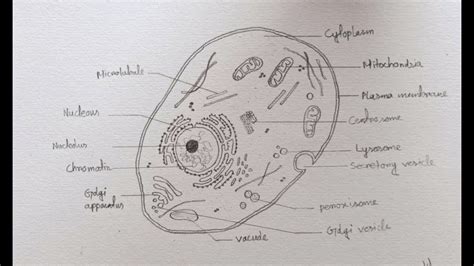 Cytoplasm
Mitochondria
Plasma membrane
Centrosome
Lysosome
Secretory vesicle
peroxisome
Golgi vesicle
vacuole
Golgi
apparatus
Chromatin
Nucleolus
Nucleus
Microtubule